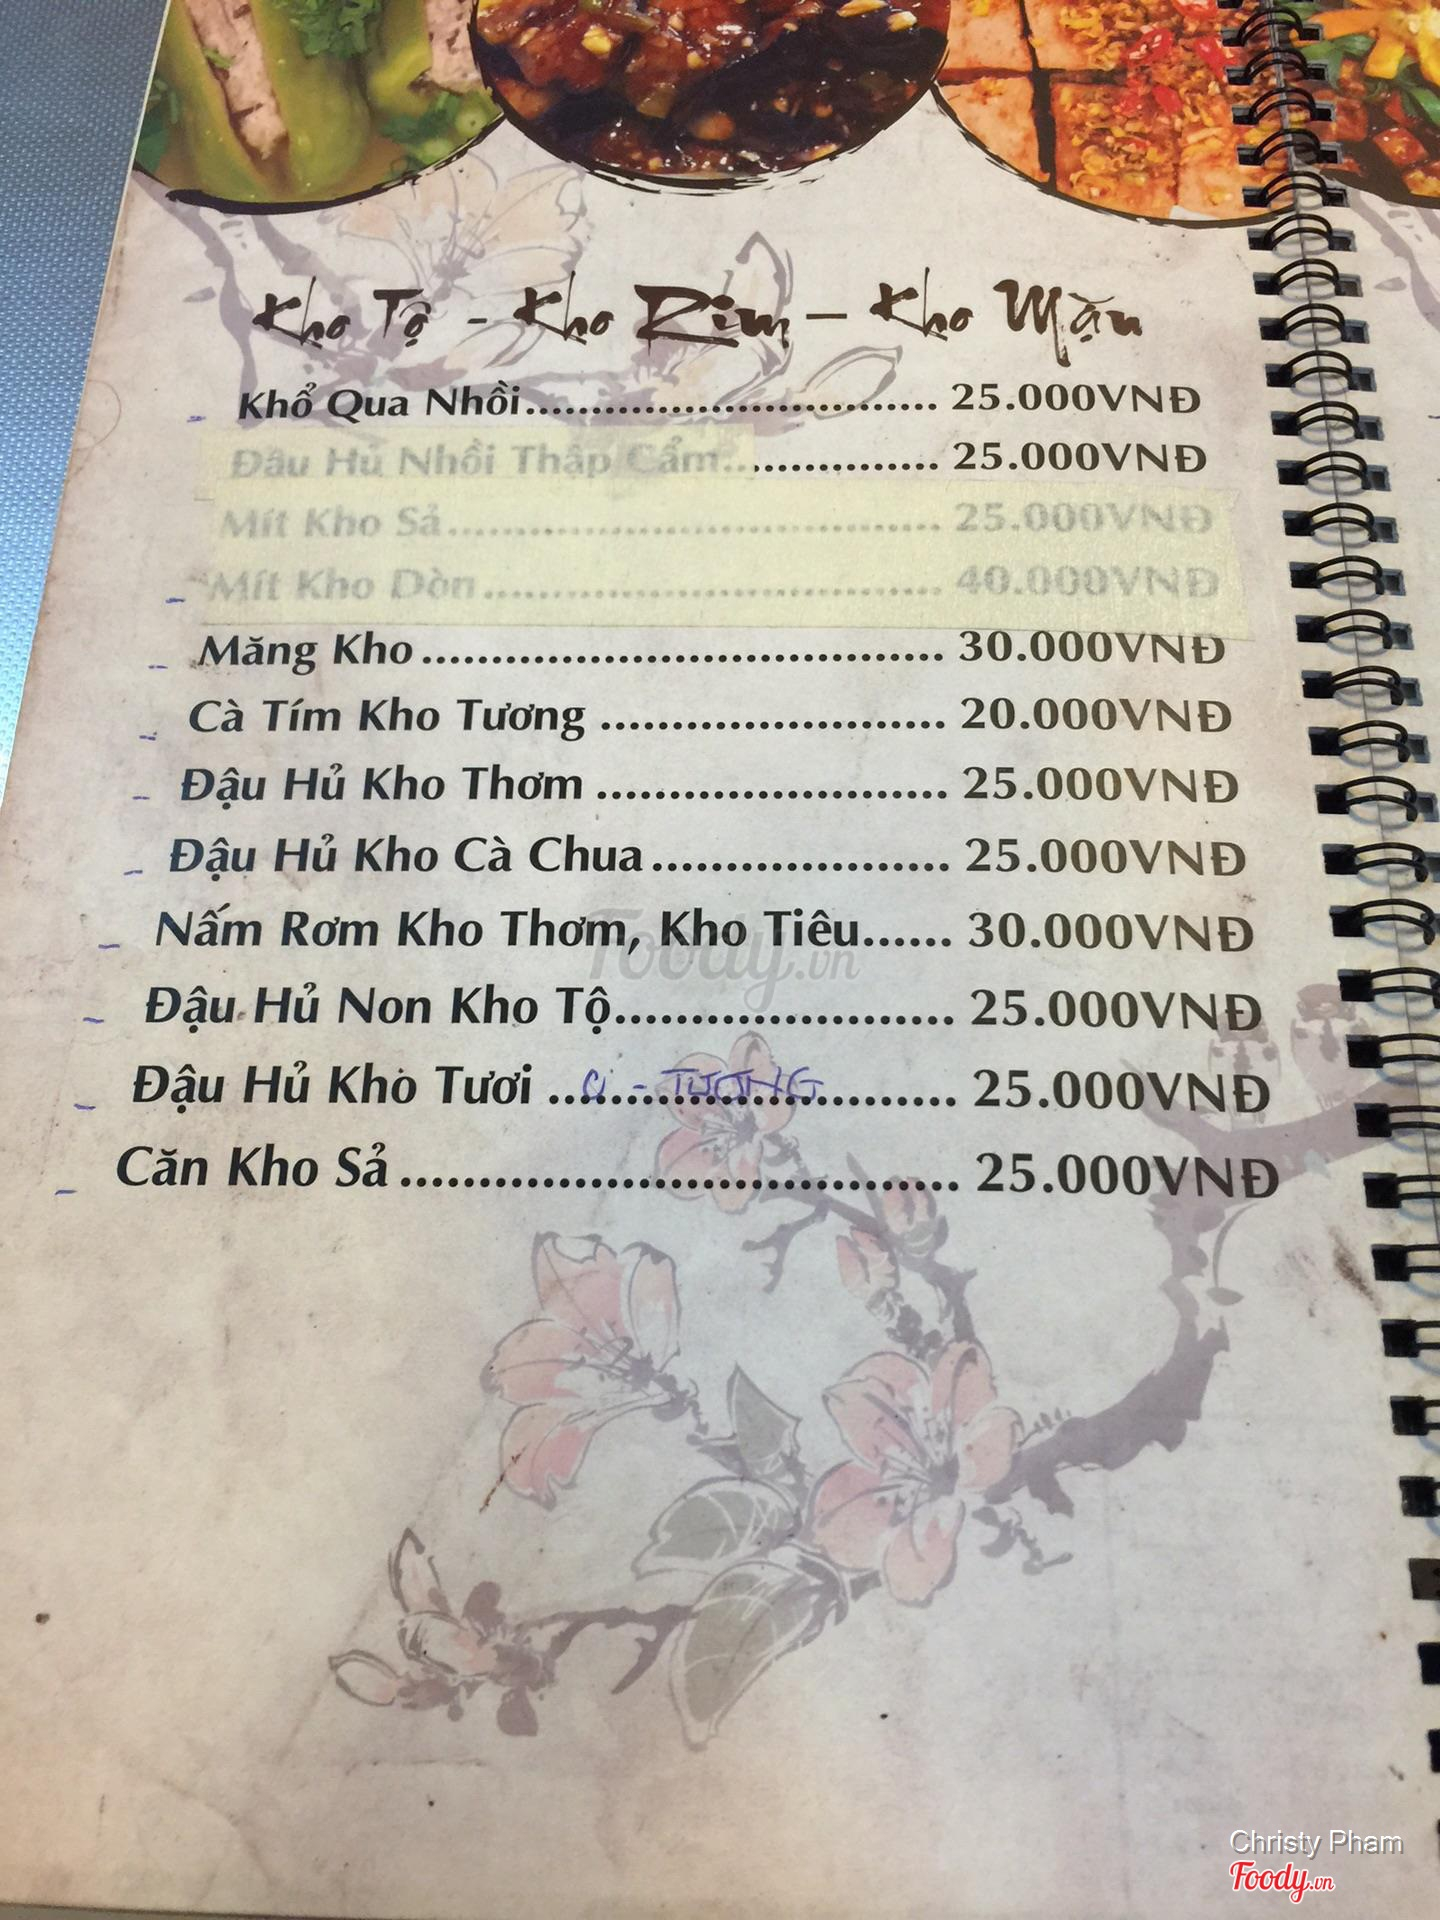 Kho Tộ - Kho Rim – Kho Mặn
Khổ Qua Nhồi.............................. 25.000VNĐ
Đâu Hủ Nhồi Thập Cẩm................ 25.000VNĐ
Mít Kho Sả.................................... 25.000VNĐ
Mít Kho Dòn................................. 40.000VNĐ
Măng Kho ...................................... 30.000VNĐ
Cà Tím Kho Tương ........................ 20.000VNĐ
Đậu Hủ Kho Thơm ........................ 25.000VNĐ
Đậu Hủ Kho Cà Chua.................... 25.000VNĐ
Nấm Rơm Kho Thơm, Kho Tiêu...... 30.000VNĐ
Foody.vn
Đậu Hủ Non Kho Tộ...................... 25.000VNĐ
Đậu Hủ Kho Tươi ... - TƯƠNG ......... 25.000VNĐ
Căn Kho Sả ................................... 25.000VNĐ
Christy Pham
Foody.vn